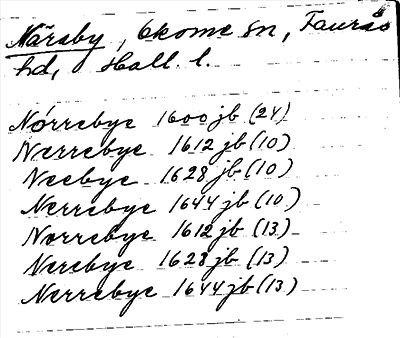 Näraby, Skome sn, Faurås
hd, Hall. l.
Nórrebye 1600 jb (24)
Nerrebye 1612 jb (10)
Neebye 1628 jb (10)
Nerrebye 1644 jb (10)
Norrebye 1612 jb (13)
Nerebye 1628 jb (13)
Nerrebye 1644 jb (13)